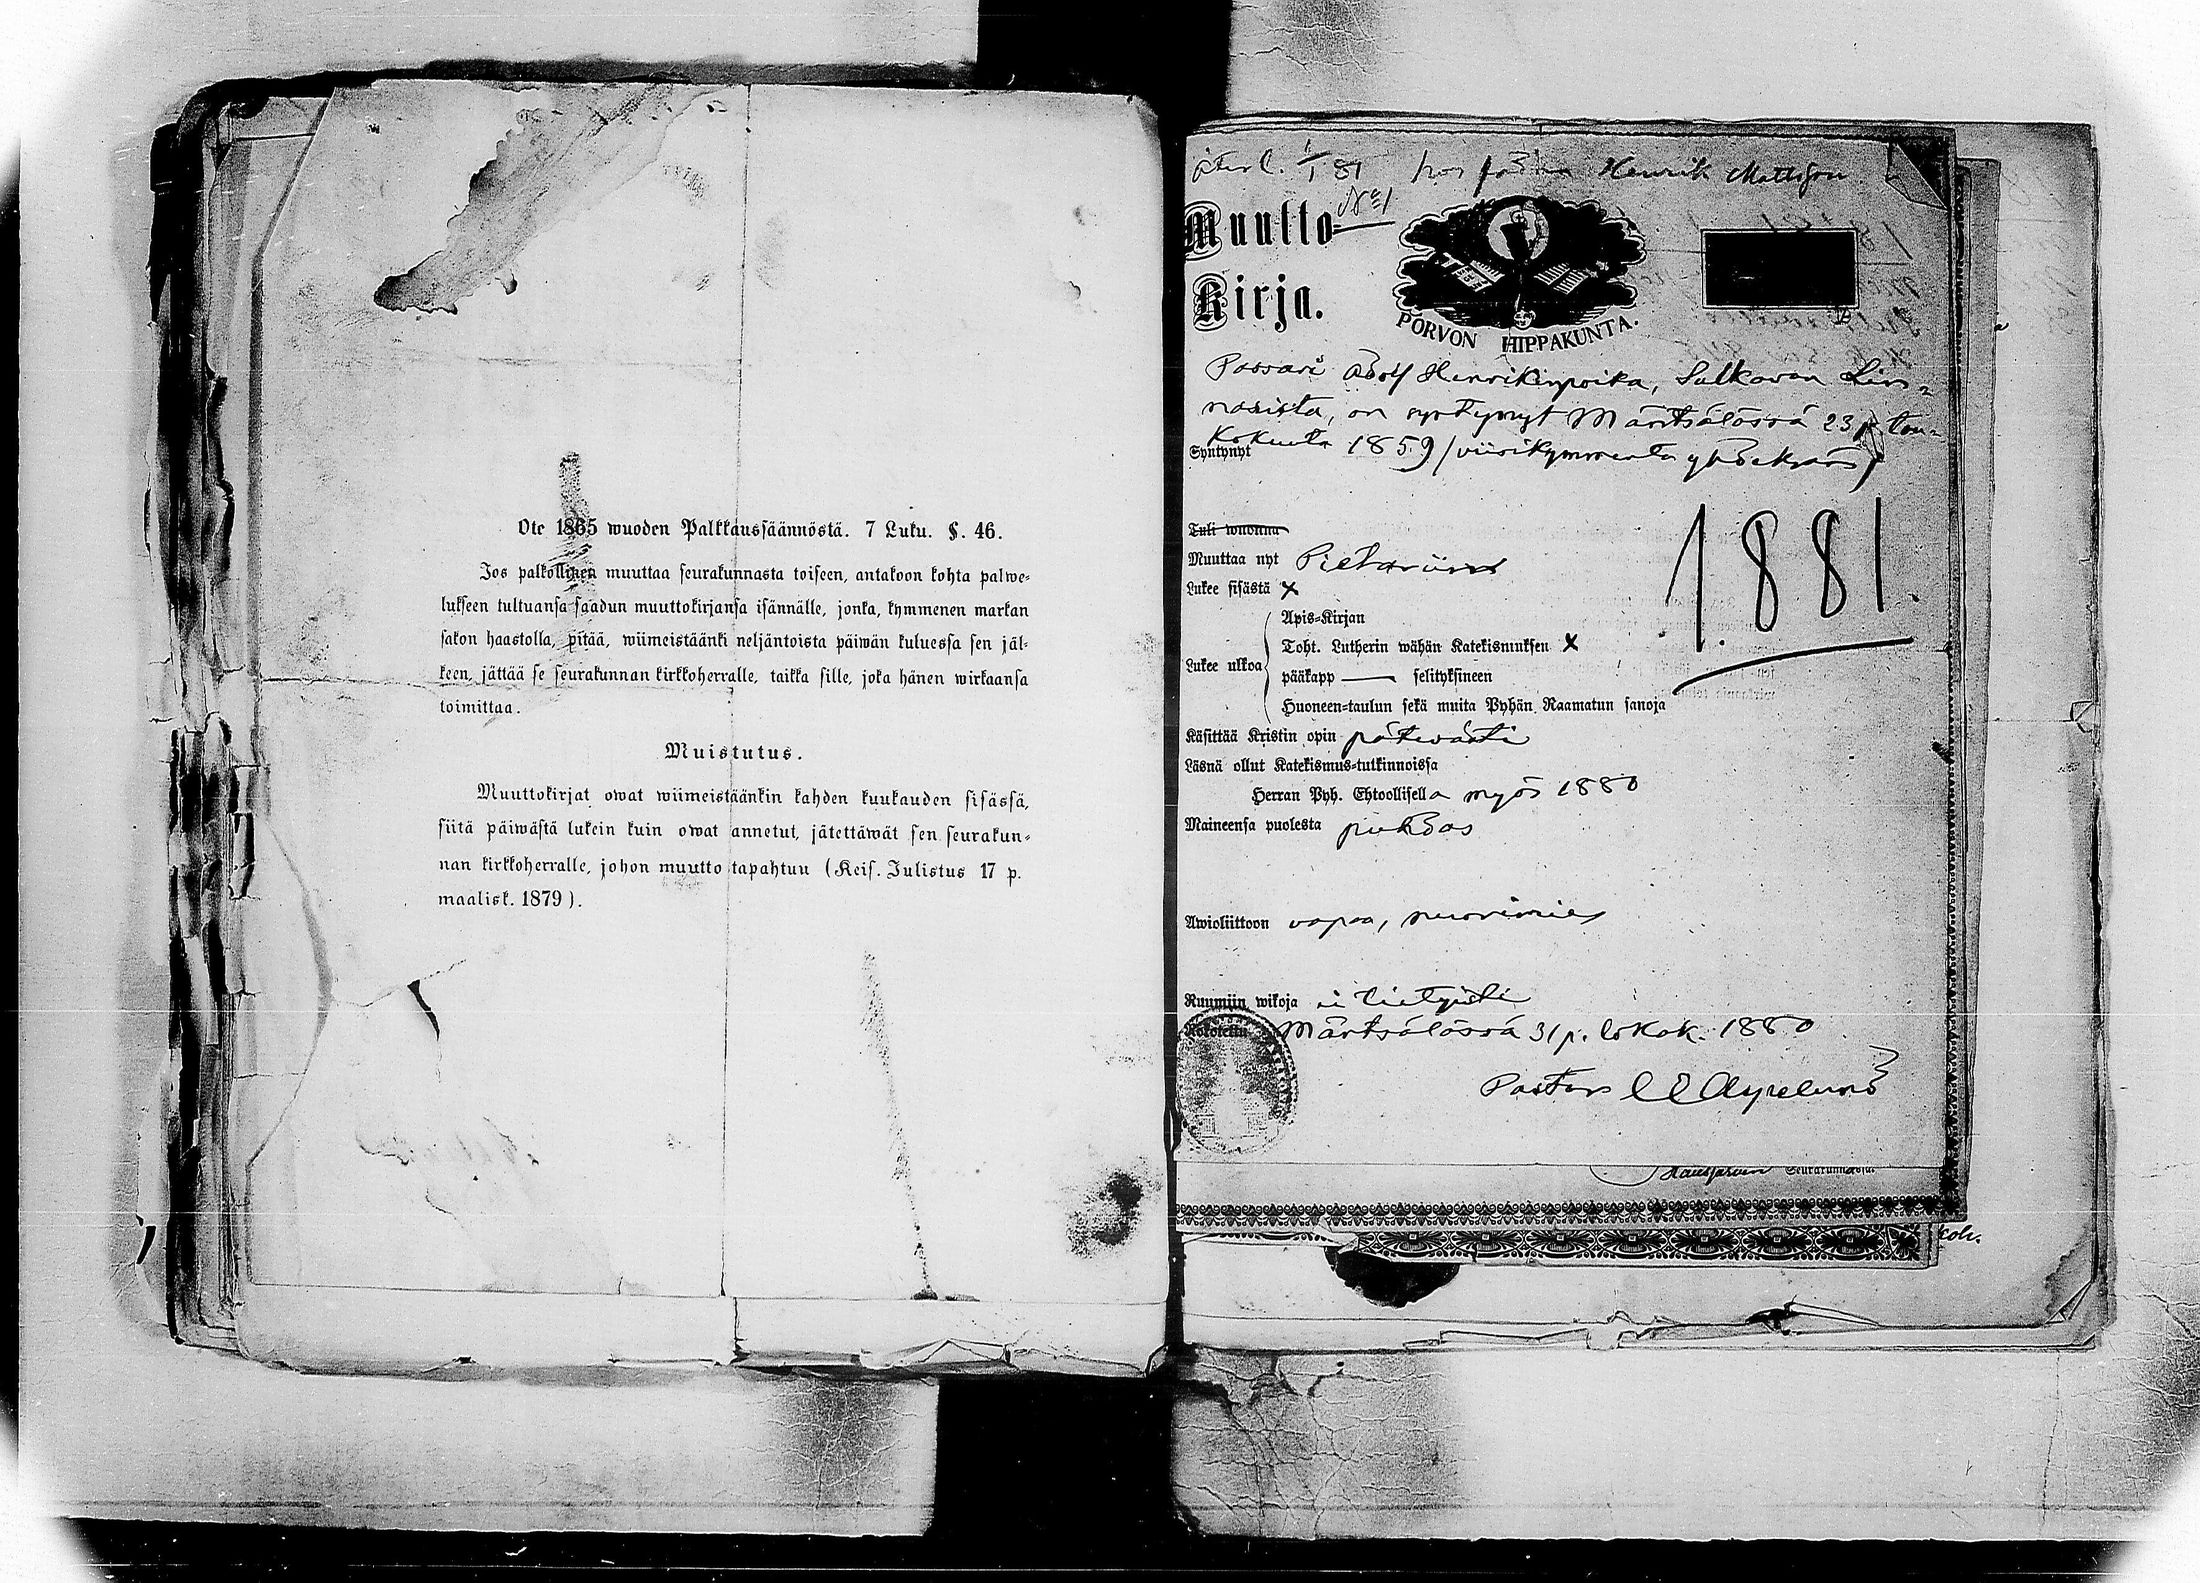 Ote 1865 wuoden Palkkaussäännöstä. 7 Luku. §. 46.
Jos palkollinen muuttaa seurakunnasta toiseen, antakoon kohta palwe-
lukseen tultuansa saadun muuttokirjansa isännälle, jonka, kymmenen markan
sakon haastolla, pitää, wiimeistäänki neljäntoista päiwän kuluessa sen jäl-
keen, jättää se seurakunnan kirkkoherralle, taikka sille, joka hänen wirkaansa
toimittaa.
Muistutus.
Muuttokirjat owat wiimeistäänkin kahden kuukauden sisässä,
siitä päiwästä lukein kuin owat annetut, jätettäwät sen seurakun-
nan kirkkoherralle, johon muutto tapahtuu (Keis. Julistus 17 p.
maalisk. 1879).
81 Henrik Mattsson
No 1
Muutto-
Kirja.
PORVON HIPPAKUNTA.
Adolf Henrikinpoika, Sulkavan Lin-
nasista, on syntynyt Mäntsälässä 23 p. tou-
kokuuta 1859 / viisikymmentä yhdeksän /
Syntynyt
1881.
Tuli wuonna
Muuttaa nyt Pietariin
Lukee sisästä x
Apis-Kirjan
Lukee ulkoa
Toht. Lutherin wähän Katekismuksen x
pääkapp — selityksineen
Huoneen-taulun sekä muita Pyhän Raamatun sanoja
Käsittää Kristin opin pätevästi
Läsnä ollut Katekismus-tutkinnoissa
Herran Pyh. Ehtoollisella myös 1880
Maineensa puolesta puhdas
Awioliittoon vapaa, nuorimies
Ruumiin wikoja ei tietyisti
Kokotettu Mäntsälässä 31 p. lokak. 1880
Pastors
Hausjärven Seurakunnassa.